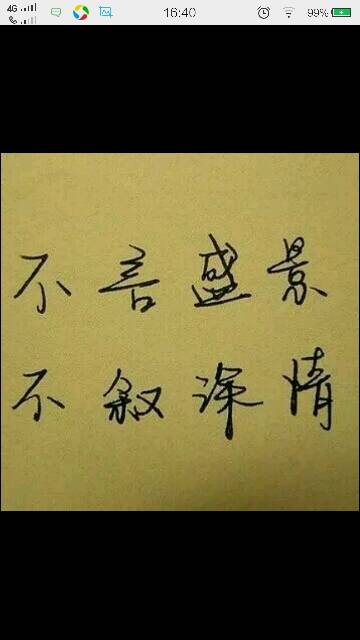 4G 16:40 99%
不言盛景
不叙深情